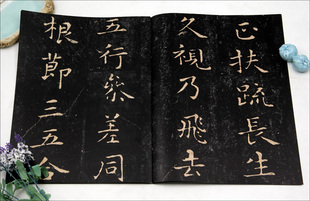 正扶疏長生
久視乃飛去
五行參差同
根節三五合